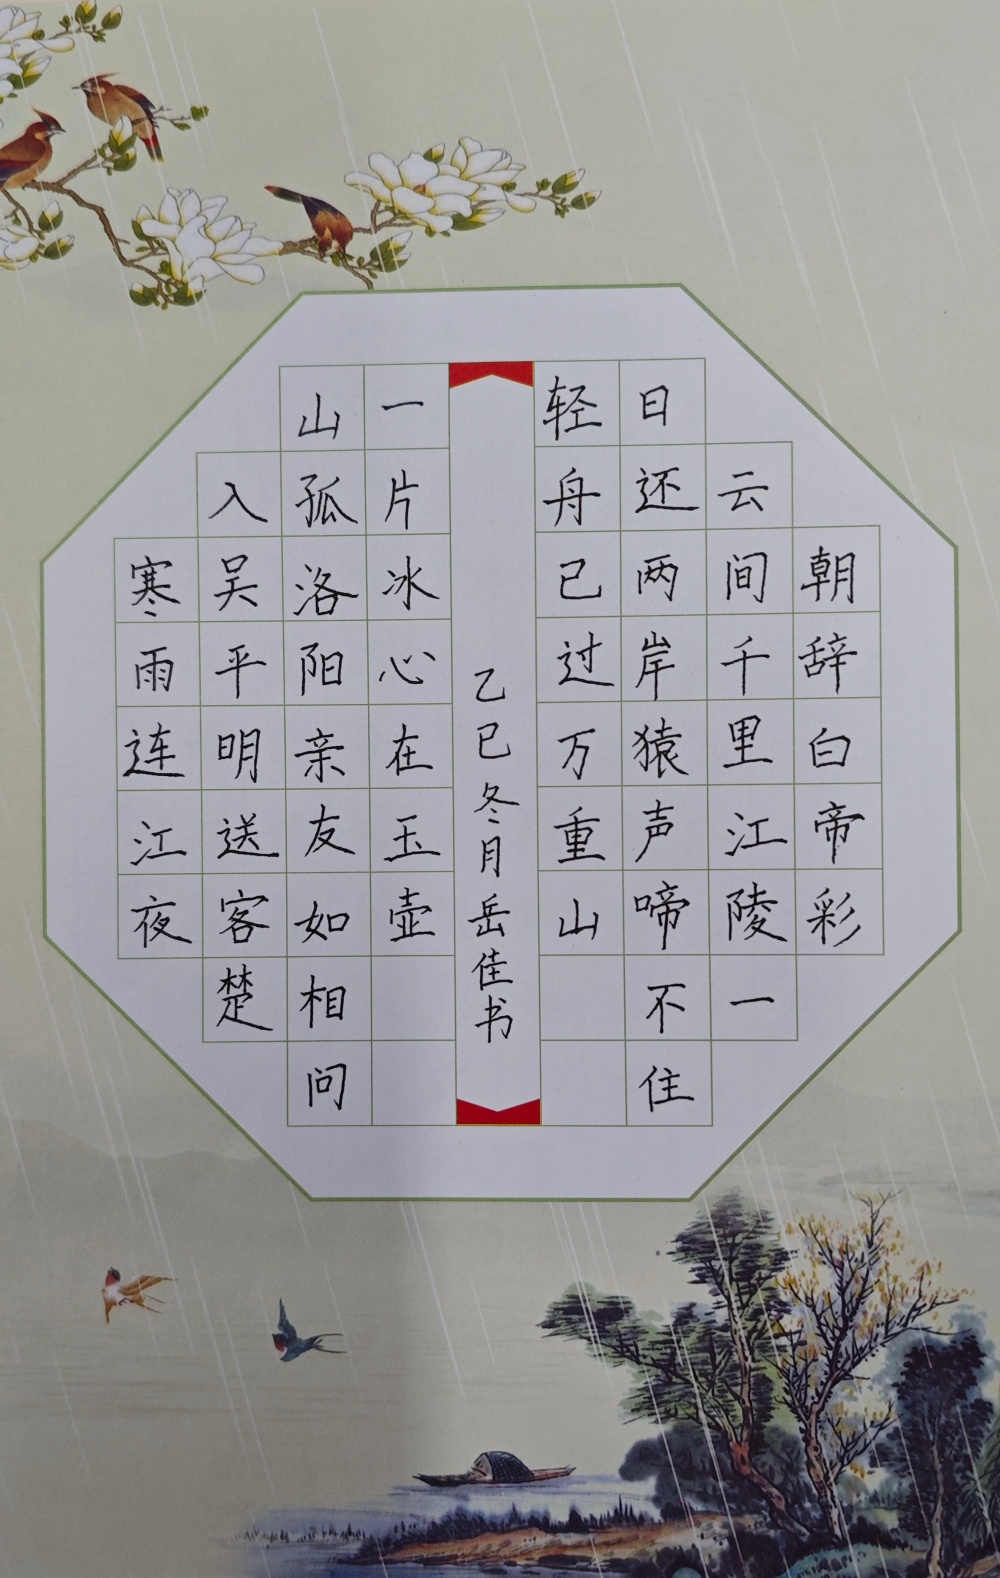 朝辞白帝彩
云间千里江陵一
日还两岸猿声啼不住
轻舟已过万重山
寒雨连江夜
入吴平明送客楚
山孤洛阳亲友如相问
一片冰心在玉壶
乙巳冬月岳佳书